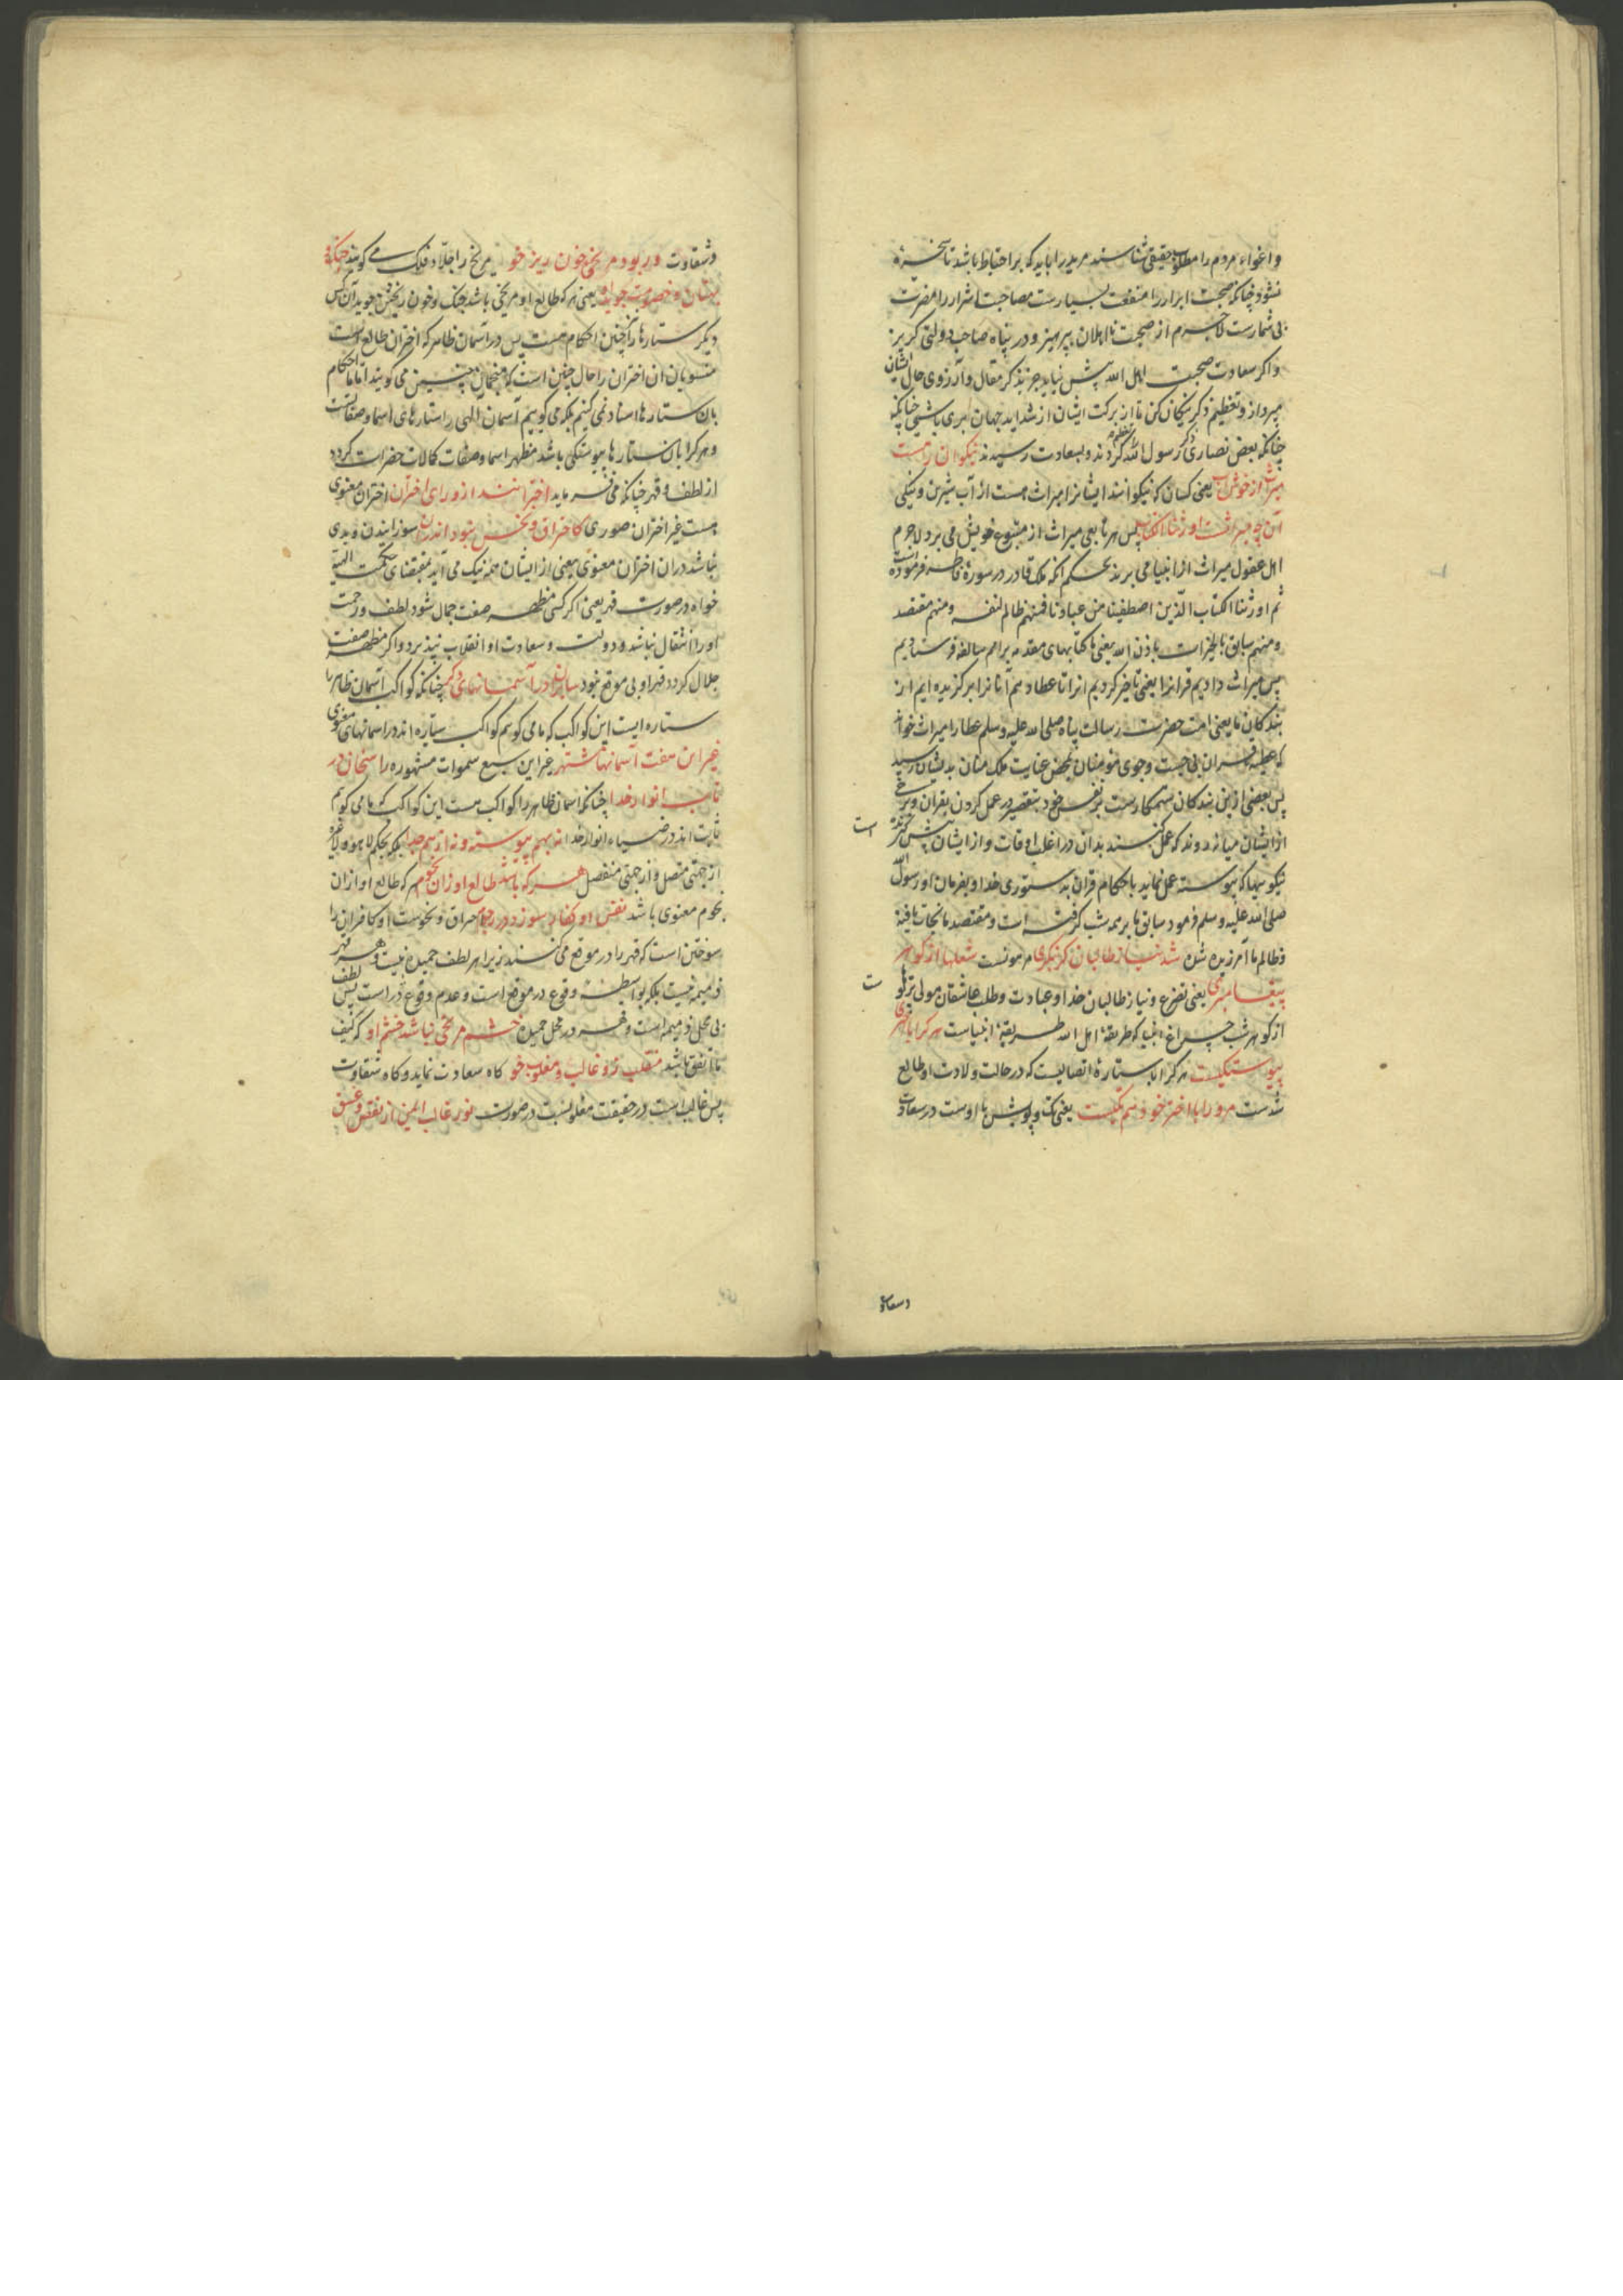 واغواء مردم را مطلوب حقیقی شناسند مرید را باید که بر احتیاط باشد تا سخرهٔ
نشود چنانکه صحبت ابرار را منفعت بسیارست مصاحبت اشرار را مضرت
بی شمارست لاجرم از صحبت نااهلان بپرهیز و در پناه صاحب دولتی گریز
و اگر سعادت صحبت اهل الله پیش نیاید جز بذکر مقال و آرزوی حال ایشان
مپرداز و تعظیم ذکر نیکان کن تا از برکت ایشان از شداید جهان بری باشی چنانکه
چنانکه بعض نصاری ذکر رسول الله تعظیم کردند و بسعادت رسیدند نیکوان را هست
میراث از خوشاب یعنی کسان که نیکوانند ایشانرا میراث هست از آب شیرین و نیکی
آن چه میراثست اورثنا الکتاب پس هر تابعی میراث از متبوع خویش می برد لاجرم
اهل عقول میراث از انبیا می برند بحکم آنکه ملک قادر در سورهٔ فاطر فرموده است
ثم اورثنا الکتاب الذین اصطفینا من عبادنا فمنهم ظالم لنفسه و منهم مقتصد
و منهم سابق بالخیرات باذن الله یعنی ما کتابهای مقدمه بر امم سالفه فرستادیم
پس میراث دادیم قرانرا یعنی تاخیر کردیم انرا تا عطا دهیم آنانرا برگزیده ایم از
بندگان ما یعنی امت حضرت رسالت پناه صلی الله علیه وسلم عطا را میراث خواند
که عطیهٔ قران بی جست وجوی مؤمنان بمحض عنایت ملک منان بدیشان رسید
پس بعضی از بن بندگان ستمکارست بر نفس خود بتقصیر در عمل کردن بقران و برخی
از ایشان میانه روند که عمل کنند بدان در اغلب اوقات و از ایشان پیش گیرنده است
نیکویهاکه پیوسته عمل نماید باحکام قران بدستوری خدا و بفرمان او رسول الله
صلی الله علیه وسلم فرمود سابق ما بر همه پیشی گرفته است و مقتصد ما نجات یافته
و ظالم ما آمرزیده شده شد نیاز طالبان کر بنکری مر مونست شعلها از گوهر
پیغامبری یعنی تضرع و نیاز طالبان خدا و عبادت و طلب عاشقان مولی پرتوهاست
از گوهر شب چراغ انبیا که طریقهٔ اهل الله طریقهٔ انبیاست هرکرا با اختری
پیوستگیست هرکرا با ستارهٔ اتصالیست که در حالت ولادت او طالع
شدست مرورا با اختر خود هم تگیست یعنی تک و پویش با اوست در سعادت
وسعادت
وشقاوت ور بود مریخی خون ریز خو مریخ را جلاد فلک می گویند جنک و
بهتان و خصومت جوید او یعنی هرکه طالع او مریخی باشد جنک و خون ریختن جوید آن کس
دیگر ستارها را چنین احکام هست پس در آسمان ظاهر که اختران طالع است
منسوبان ان اختران را حال چنین است که منجمان چنین می گویند اما ما احکام
بان ستارها اسناد نمی کنیم بلکه می گوییم آسمان الهی را ستارهای اسما و صفاتست
و هرکرا بان ستارها پیوستگی باشد مظهر اسما و صفات کمالات حضرات گردد
از لطف و قهر چنانکه می فرماید اخترانند از ورای اختران اختران معنوی
هست غیر اختران صوری کاحتراق و نحس نبود اندران سوزانیدن و بدی
نباشد دران اختران معنوی یعنی از ایشان همه نیک می آید بمقتضای حکمت الهیه
خواه در صورت قهر یعنی اگر کسی مظهر صفت جمال شود لطف و رحمت
اورا انتقال نباشد و دولت و سعادت او انقلاب نپذیرد و اگر مظهر صفت
جلال گردد قهر او بی موقع نبود سایران در آسمانهای دگر چنانکه کواکب آسمان ظاهر را
ستاره ایست این کواکب که ما می گویم کواکب سیاره اند در اسمانهای معنوی
غیر این هفت آسمانها مشتهر غیر این سبع سموات مشهوره راسخان در
تاب انوار خدا چنانکه اسمان ظاهر را کواکب هست این کواکب که ما می گویم
ثابت اند در ضیاء انوار خدا نه بهم پیوسته و نه از هم جدا بلکه بحکم لا هو ولا غیره
از جهتی متصل و از جهتی منفصل هرکه باشد طالع او زان نجوم هرکه طالع او ازان
نجوم معنوی باشد نفس او کفار سوزد در رجوم احراق و نحوست او کافران را
سوختن است که قهر را در موقع می کنند زیرا هر لطف جمیده نیست و هر قهر
ذمیمه نیست بلکه بواسطهٔ وقوع در موقع است و عدم وقوع دراست پس لطف
بی محل ذمیمه است و قهر در محل حمیده خشم مریخی نباشد خشم او که کیف
ما اتفق باشد منقلب رو غالب و مغلوب خو گاه سعادت نماید و گاه شقاوت
پس غالب است در حقیقت مغلوبست در صورت نور غالب ایمن از نقص و غسق